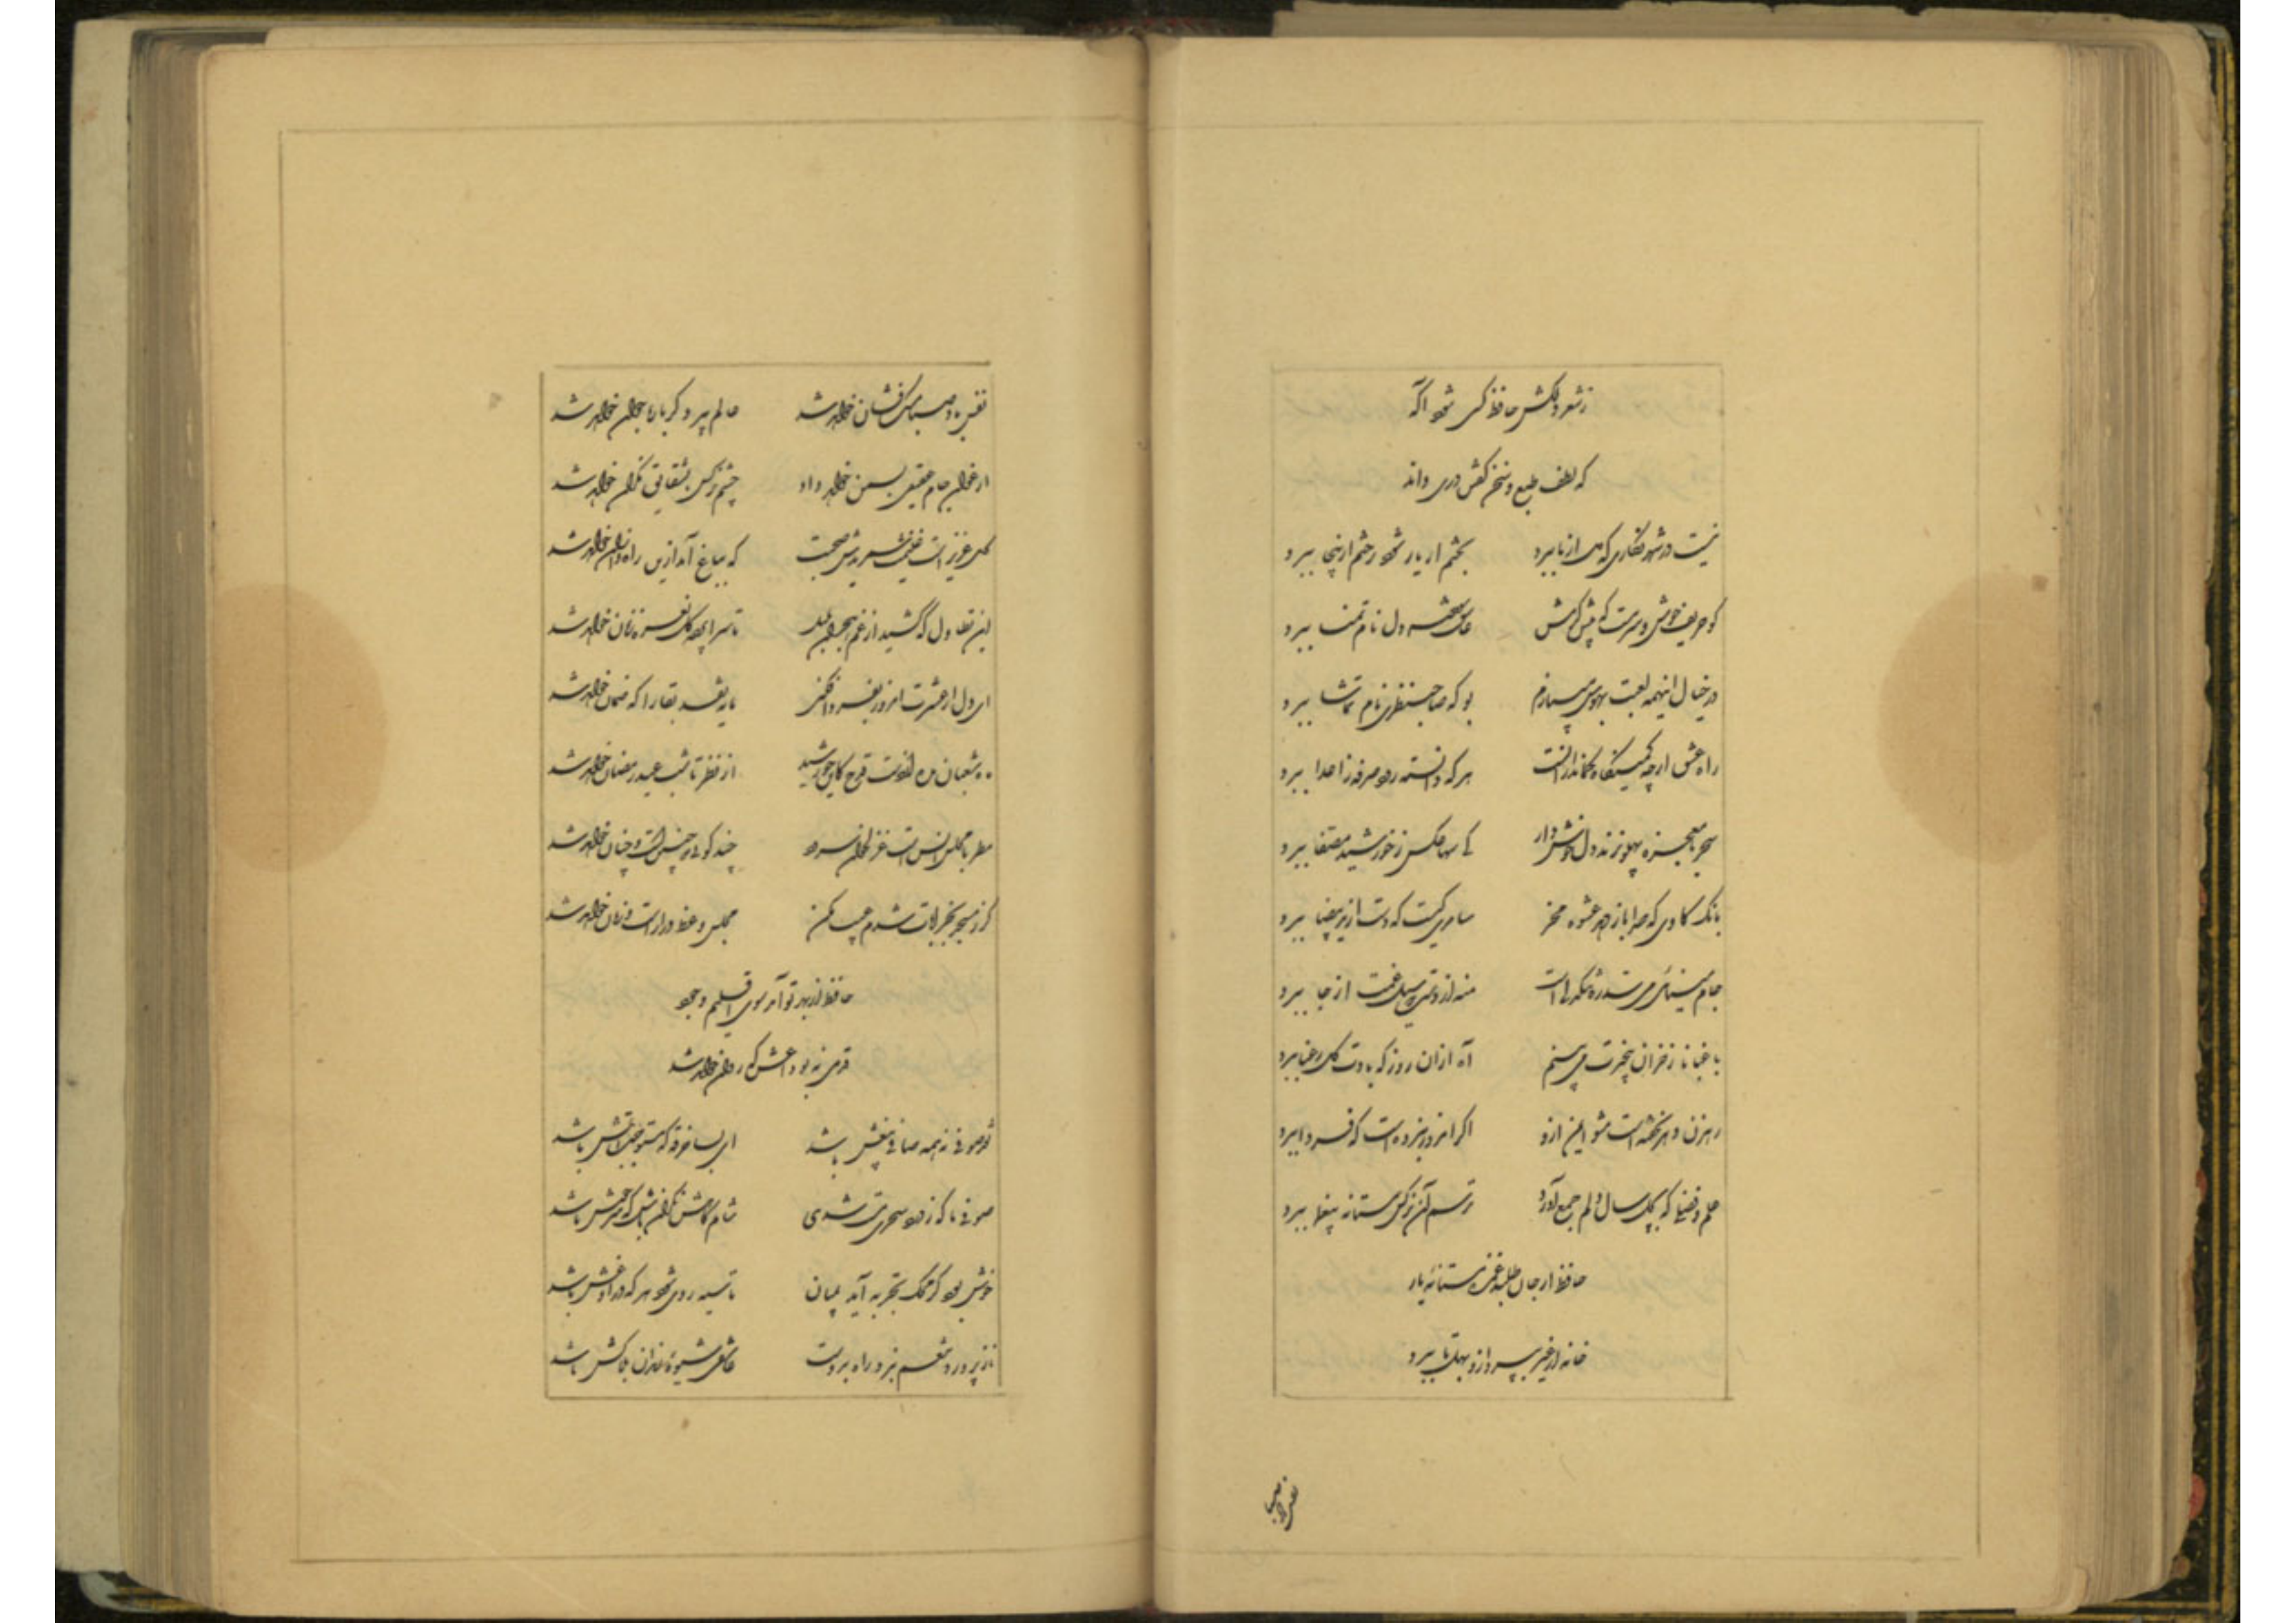 ز شعر دلکش حافظ کسی شود آگه
که لطف طبع و سخن گفتن دری داند
نیست در شهر نگاری که دل از ما ببرد بختم ار یار شود رختم ازینجا ببرد
کو حریفی خوش و سرمست که پیش کرمش عاشق سوخته دل نام تمنا ببرد
در خیال اینهمه لعبت بهوس میبازم بو که صاحبنظری نام تماشا ببرد
راه عشق ارچه کمینگاه کماندارانست هر که دانسته رود صرفه ز اعدا ببرد
سحر با معجزه پهلو نزند دل خوش دار کی سها عکس ز خورشید مصفا ببرد
بانک گاوی که صدا باز دهد عشوه مخر سامری کیست که دست از ید بیضا ببرد
جام مینائی می سد ره تنگدلی است منه از دست که سیل غمت از جا ببرد
باغبانا ز خزان بیخبرت می بینم آه ازان روز که بادت گل رعنا ببرد
رهزن دهر نخفته است مشو ایمن ازو اگر امروز نبرده است که فردا ببرد
علم و فضلی که بچل سال دلم جمع آورد ترسم آن نرگس مستانه بیغما ببرد
حافظ ار جان طلبد غمزه مستانهٔ یار
خانه از غیر بپرداز و بهل تا ببرد
نفس باد صبا
نفس باد صبا مشک فشان خواهد شد عالم پیر دگر باره جوان خواهد شد
ارغوان جام عقیقی بسمن خواهد داد چشم نرگس بشقایق نگران خواهد شد
گل عزیز است غنیمت شمریدش صحبت که بباغ آمد ازین راه و ازان خواهد شد
این تطاول که کشید از غم هجران بلبل تا سراپرده گل نعره زنان خواهد شد
ای دل ار عشرت امروز بفردا فکنی مایه نقد بقا را که ضمان خواهد شد
ماه شعبان مده از دست قدح کاین خورشید از نظر تا شب عید رمضان خواهد شد
مطربا مجلس انس است غزل خوان و سرود چند گوئی که چنین است و چنان خواهد شد
گر ز مسجد بخرابات شدم عیب مکن مجلس وعظ دراز است و زمان خواهد شد
حافظ از بهر تو آمد سوی اقلیم وجود
قدمی نه بوداعش که روان خواهد شد
نقد صوفی نه همه صافی بیغش باشد ای بسا خرقه که مستوجب آتش باشد
صوفی ما که ز ورد سحری مست شدی شامگاهش نگران باش که سرخوش باشد
خوش بود گر محک تجربه آید بمیان تا سیه روی شود هر که دراو غش باشد
ناز پرورد تنعم نبرد راه بدوست عاشقی شیوهٔ رندان بلاکش باشد